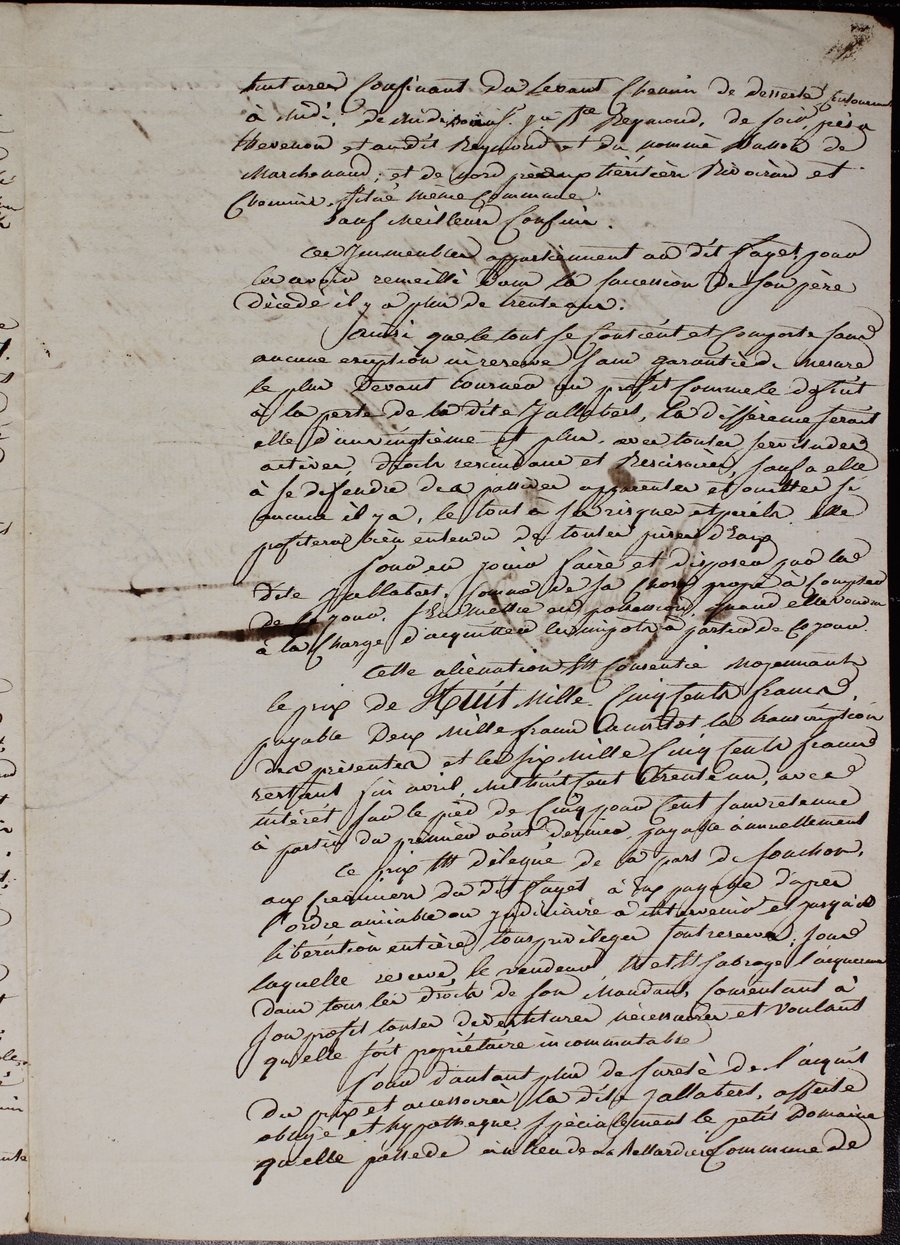 Confinant du levant Chemin de desserte
à Midi, Reymond, de soir
Thevenon et audit Reymond et du nommé de
Marchenaud, et de nord héritiers et
Chemin, situé même Commune.
Sauf Meilleurs Confins.
Ces Immeubles appartiennent au dit Fayet pour
les avoir recueilli dans la succession de son père
décédé il y a plus de trente ans.
Ainsi que le tout se contient et comporte sans
aucune exeption ni reserve sans garantie de mesure
le plus devant tourner au profit comme le deficit
à la perte de la dite Jallabert, la différence serait
elle d'un vingtième et plus, avec toutes servitudes
actives, droits rescindans et Rescisoires, sauf a elle
à se défendre des passives apparentes et occultes si
aucune il y a, le tout à ses risques et perils elle
profitera bien entendu de toutes prises d'Eaux
Pour en jouir faire et disposer par la
dite Jallabert, comme de sa chose propre à compter
de ce jour. possession, quand elle voudra
à la Charge d'acquitter les impots à partir de ce jour
Cette aliénation est Consentie moyennant
le prix de Huit Mille Cinq Cents francs,
payable Deux Mille francs la transcription
des présentes et les six Mille Cinq Cents francs
restant avril, mil huit cent trente un, avec
intérêt sur le pied de Cinq pour Cent sans retenue
à partir du premier août dernier, payable annuellement
Ce prix est délégué de la part de Souchon,
aux Créanciers du dit Fayet à eux payable d'après
l'ordre amiable ou judiciaire à intervenir et jusqu'à
libération entière tous privilèges sont reservés; sous
laquelle reserve le vendeur, met et subroge l'acquereur
dans tous les droits de son Mandant, Consentant à
son profit toutes devestitures nécessaires et voulant
qu'elle soit propriétaire incommutable
Pour d'autant plus de sureté de l'acquit
du prix et accessoires la dite Jallabert, affecte
oblige et hypotheque spécialement le petit Domaine
qu'elle possede au lieu de la Commune de